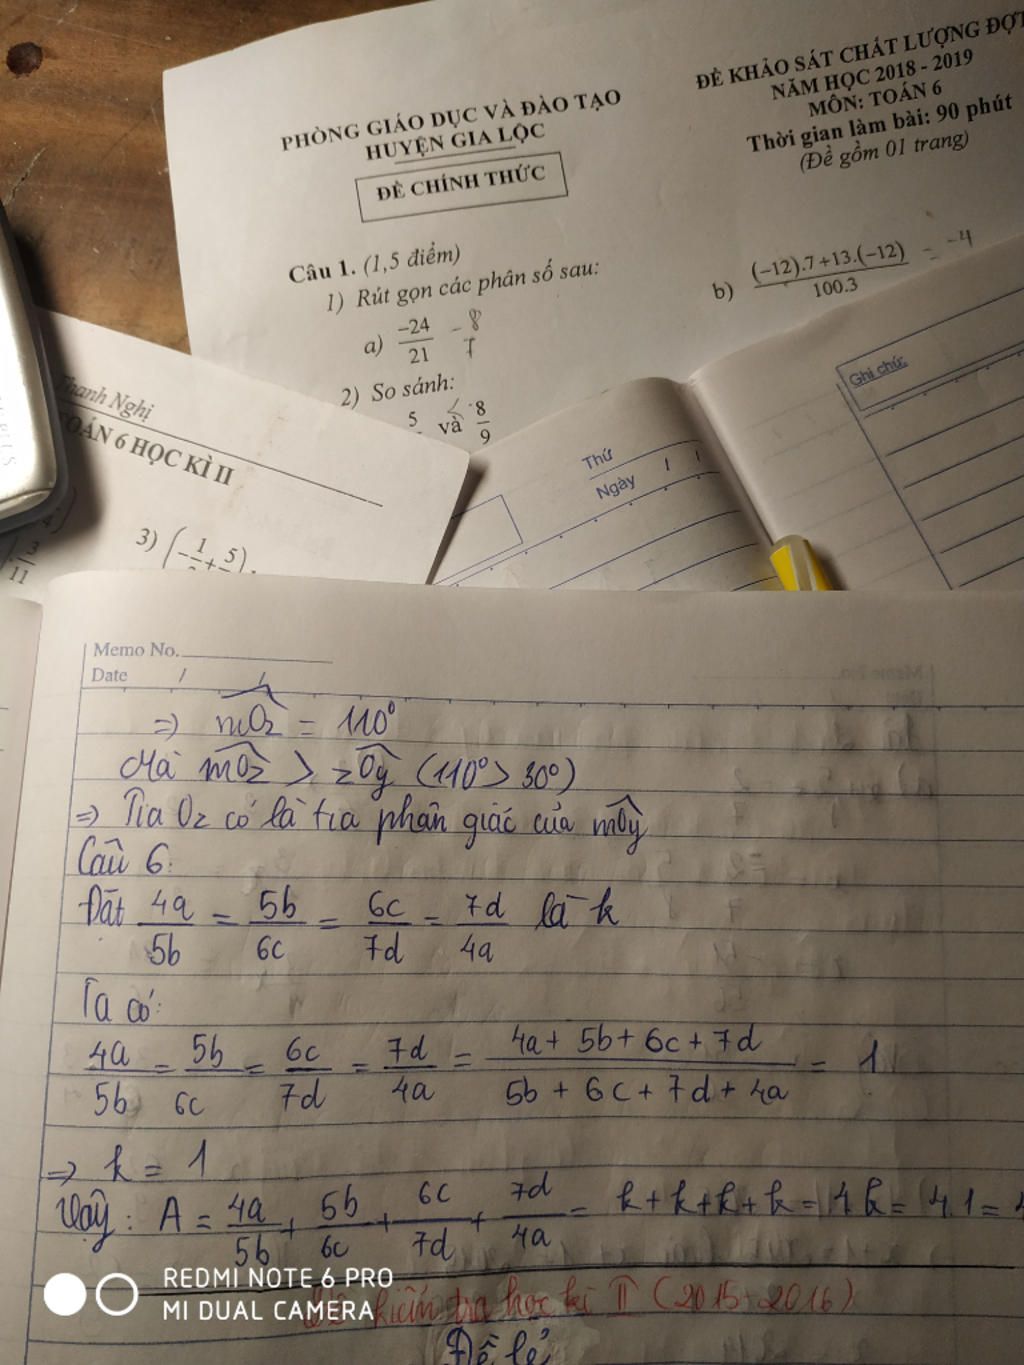 PHÒNG GIÁO DỤC VÀ ĐÀO TẠO
HUYỆN GIA LỘC
ĐỀ CHÍNH THỨC
ĐỀ KHẢO SÁT CHẤT LƯỢNG ĐỢT
NĂM HỌC 2018 - 2019
MÔN: TOÁN 6
Thời gian làm bài: 90 phút
(Đề gồm 01 trang)
Câu 1. (1,5 điểm)
1) Rút gọn các phân số sau:
a) -24/21 -8/7
b) (-12).7+13.(-12)/100.3 = -4
2) So sánh:
5 và < 8/9
Thanh Nghị
TOÁN 6 HỌC KÌ II
3) (-1 + 5).
3/11
Thứ
Ngày / /
Ghi chú:
Memo No.
Date / /
=> mOz = 110°
Mà mOz > zOy (110° > 30°)
=> Tia Oz có là tia phân giác của mOy
Câu 6:
Đặt 4a/5b = 5b/6c = 6c/7d = 7d/4a là k
Ta có:
4a/5b = 5b/6c = 6c/7d = 7d/4a = 4a + 5b + 6c + 7d/5b + 6c + 7d + 4a = 1
=> k = 1
Vậy: A = 4a/5b + 5b/6c + 6c/7d + 7d/4a = k + k + k + k = 4k = 4.1 = 4
REDMI NOTE 6 PRO
MI DUAL CAMERA
kiểm tra học kì II (2015-2016)
Đề lẻ